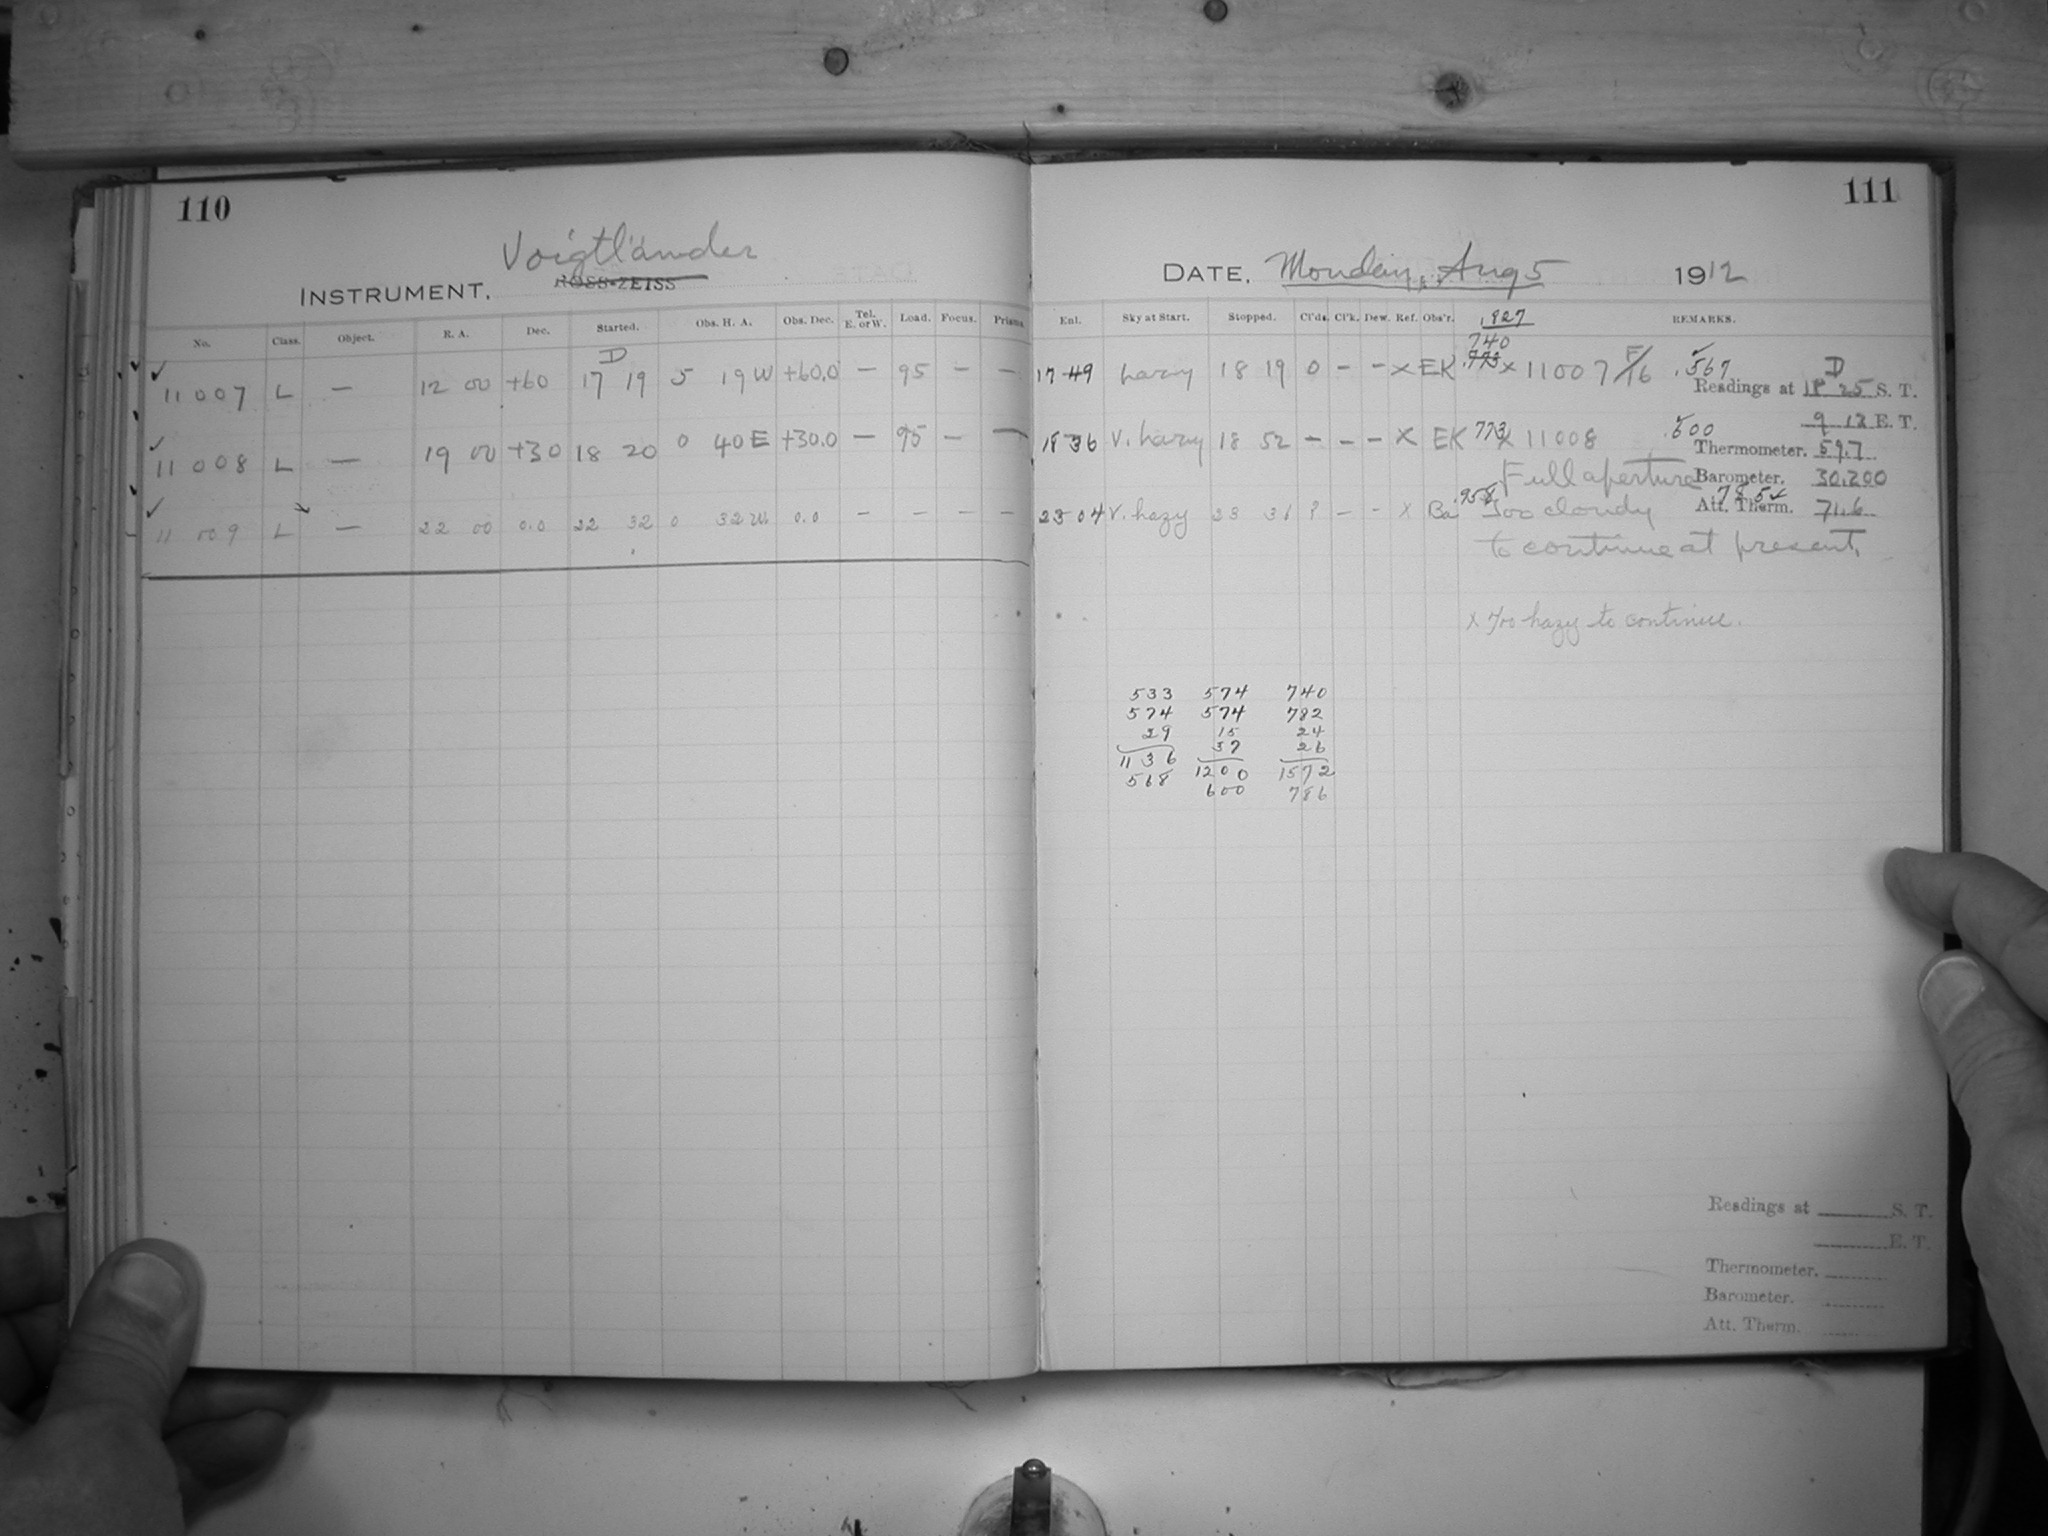 110
Voigtländer
INSTRUMENT. ROSS-ZEISS
No. Class. Object. R. A. Dec. Started. Obs. H. A. Obs. Dec. Tel. E. or W. Load. Focus. Prisms.
D
11007 L — 12 00 +60 17 19 5 19 W +60.0 — 95 — —
11008 L — 19 00 +30 18 20 0 40 E +30.0 — 95 — —
11009 L — 22 00 0.0 22 32 0 32 W. 0.0 — — — —
111
DATE. Monday, Aug 5 1912
Enl. Sky at Start. Stopped. Cl'ds. Cl'k. Dew. Ref. Obs'r. .927 REMARKS.
740
17 49 hazy 18 19 0 - - x EK .773 x 11007 F/16 .567
D
Readings at 18 25 S. T.
9 12 E. T.
18 36 V. hazy 18 52 - - - x EK 773 x 11008 .600
Thermometer. 59.7
Full aperture
Barometer. 30.200
785
Att. Therm. 71.6
23 04 V. hazy 23 36 ? - - x Ba .958 Too cloudy
to continue at present.
x Too hazy to continue.
533 574 740
574 574 782
29 15 24
37 26
1136 1200 1572
568 600 786
Readings at S. T.
E. T.
Thermometer.
Barometer.
Att. Therm.